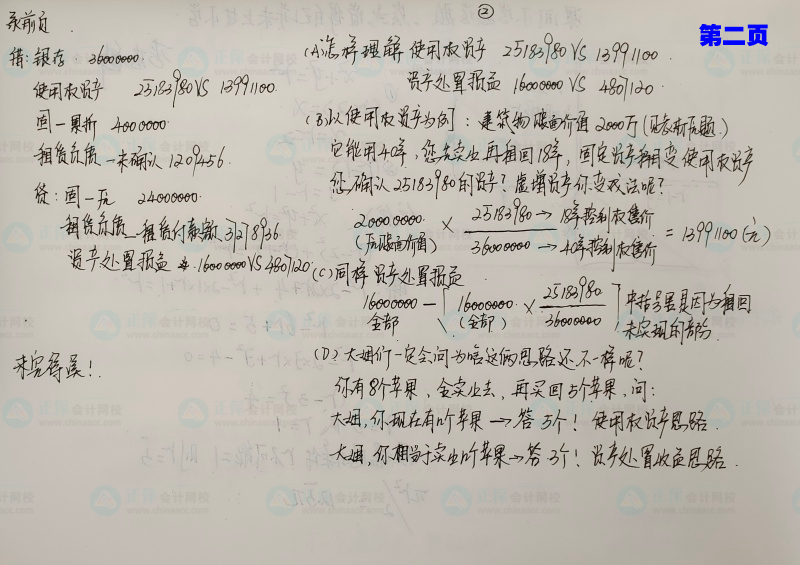 ②
第二页
承前页
借:银存: 36000000
使用权资产 25183980 VS 13991100.
固一累折 4000000
租赁负债—未确认 1209456.
贷:固一元 24000000
租赁负债—租赁付款额 31278936
资产处置损益 16000000 VS 4807120
未完待误!
(A)怎样理解使用权资产 25183980 VS 13991100
资产处置损益 16000000 VS 4807120
(B)以使用权资产为例:建筑物账面价值2000万(
它能用40年,您先卖出再租回18年,固定资产摇身变使用权资产
您确认25183980的资产?虚增资产你变戏法呢?
20000000 × 25183980→18年控制权售价 = 13991100(元)
(原账面价值) 36000000→40年控制权售价
(C)同样资产处置损益
16000000 — [16000000 × 25183980] 中括号里是因为租回
全部 (全部) 36000000 未实现的部分
(D)大姐们一定会问为啥这俩思路还不一样呢?
你有8个苹果,全卖出去,再买回5个苹果,问:
大姐,你现在有几个苹果→答5个!使用权资产思路.
大姐,你相当于卖出几个苹果→答3个!资产处置收益思路.
正保会计网校
www.chinaacc.com